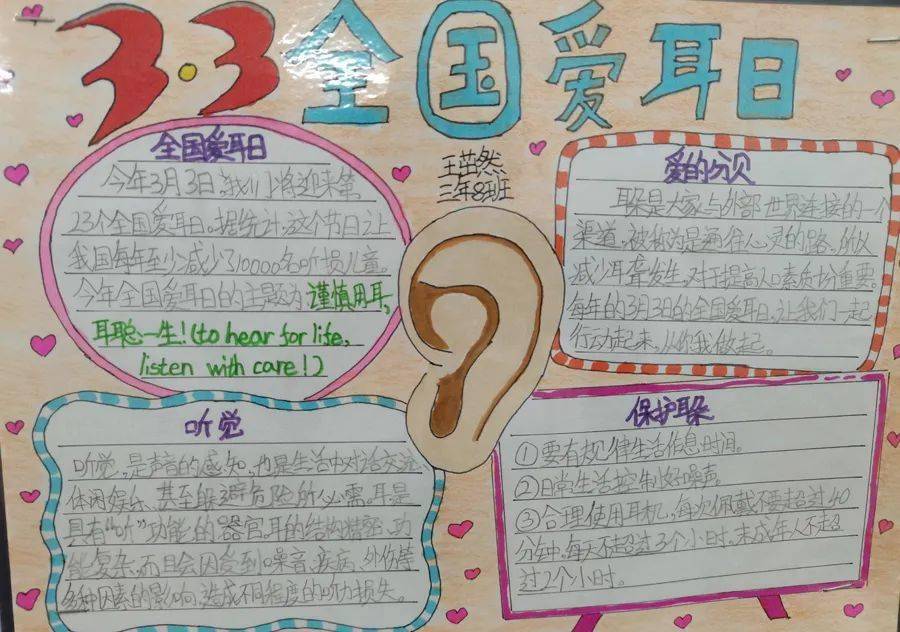 3·3全国爱耳日
王茁然
三年8班
全国爱耳日
今年3月3日,我们将迎来第
23个全国爱耳日。据统计,这个节日让
我国每年至少减少了10000名听损儿童。
今年全国爱耳日的主题为:谨慎用耳,
耳聪一生!(to hear for life,
listen with care!)
爱的分贝
耳朵是大家与外部世界连接的一个
渠道,被称为是通往心灵的路,所以
减少耳聋发生,对于提高人口素质十分重要。
每年的3月3日的全国爱耳日,让我们一起
行动起来,从你我做起。
听觉
听觉,是声音的感知,也是生活中对话交流、
休闲娱乐、甚至躲避危险所必需。耳是
具有“听”功能的器官,耳的结构精密,功
能复杂,而且会因受到噪音、疾病、外伤等
多种因素的影响,造成不同程度的听力损失。
保护耳朵
①要有规律生活作息时间。
②日常生活控制好噪声。
③合理使用耳机,每次佩戴不要超过40
分钟,每天不超过3个小时,未成年人不超
过2个小时。